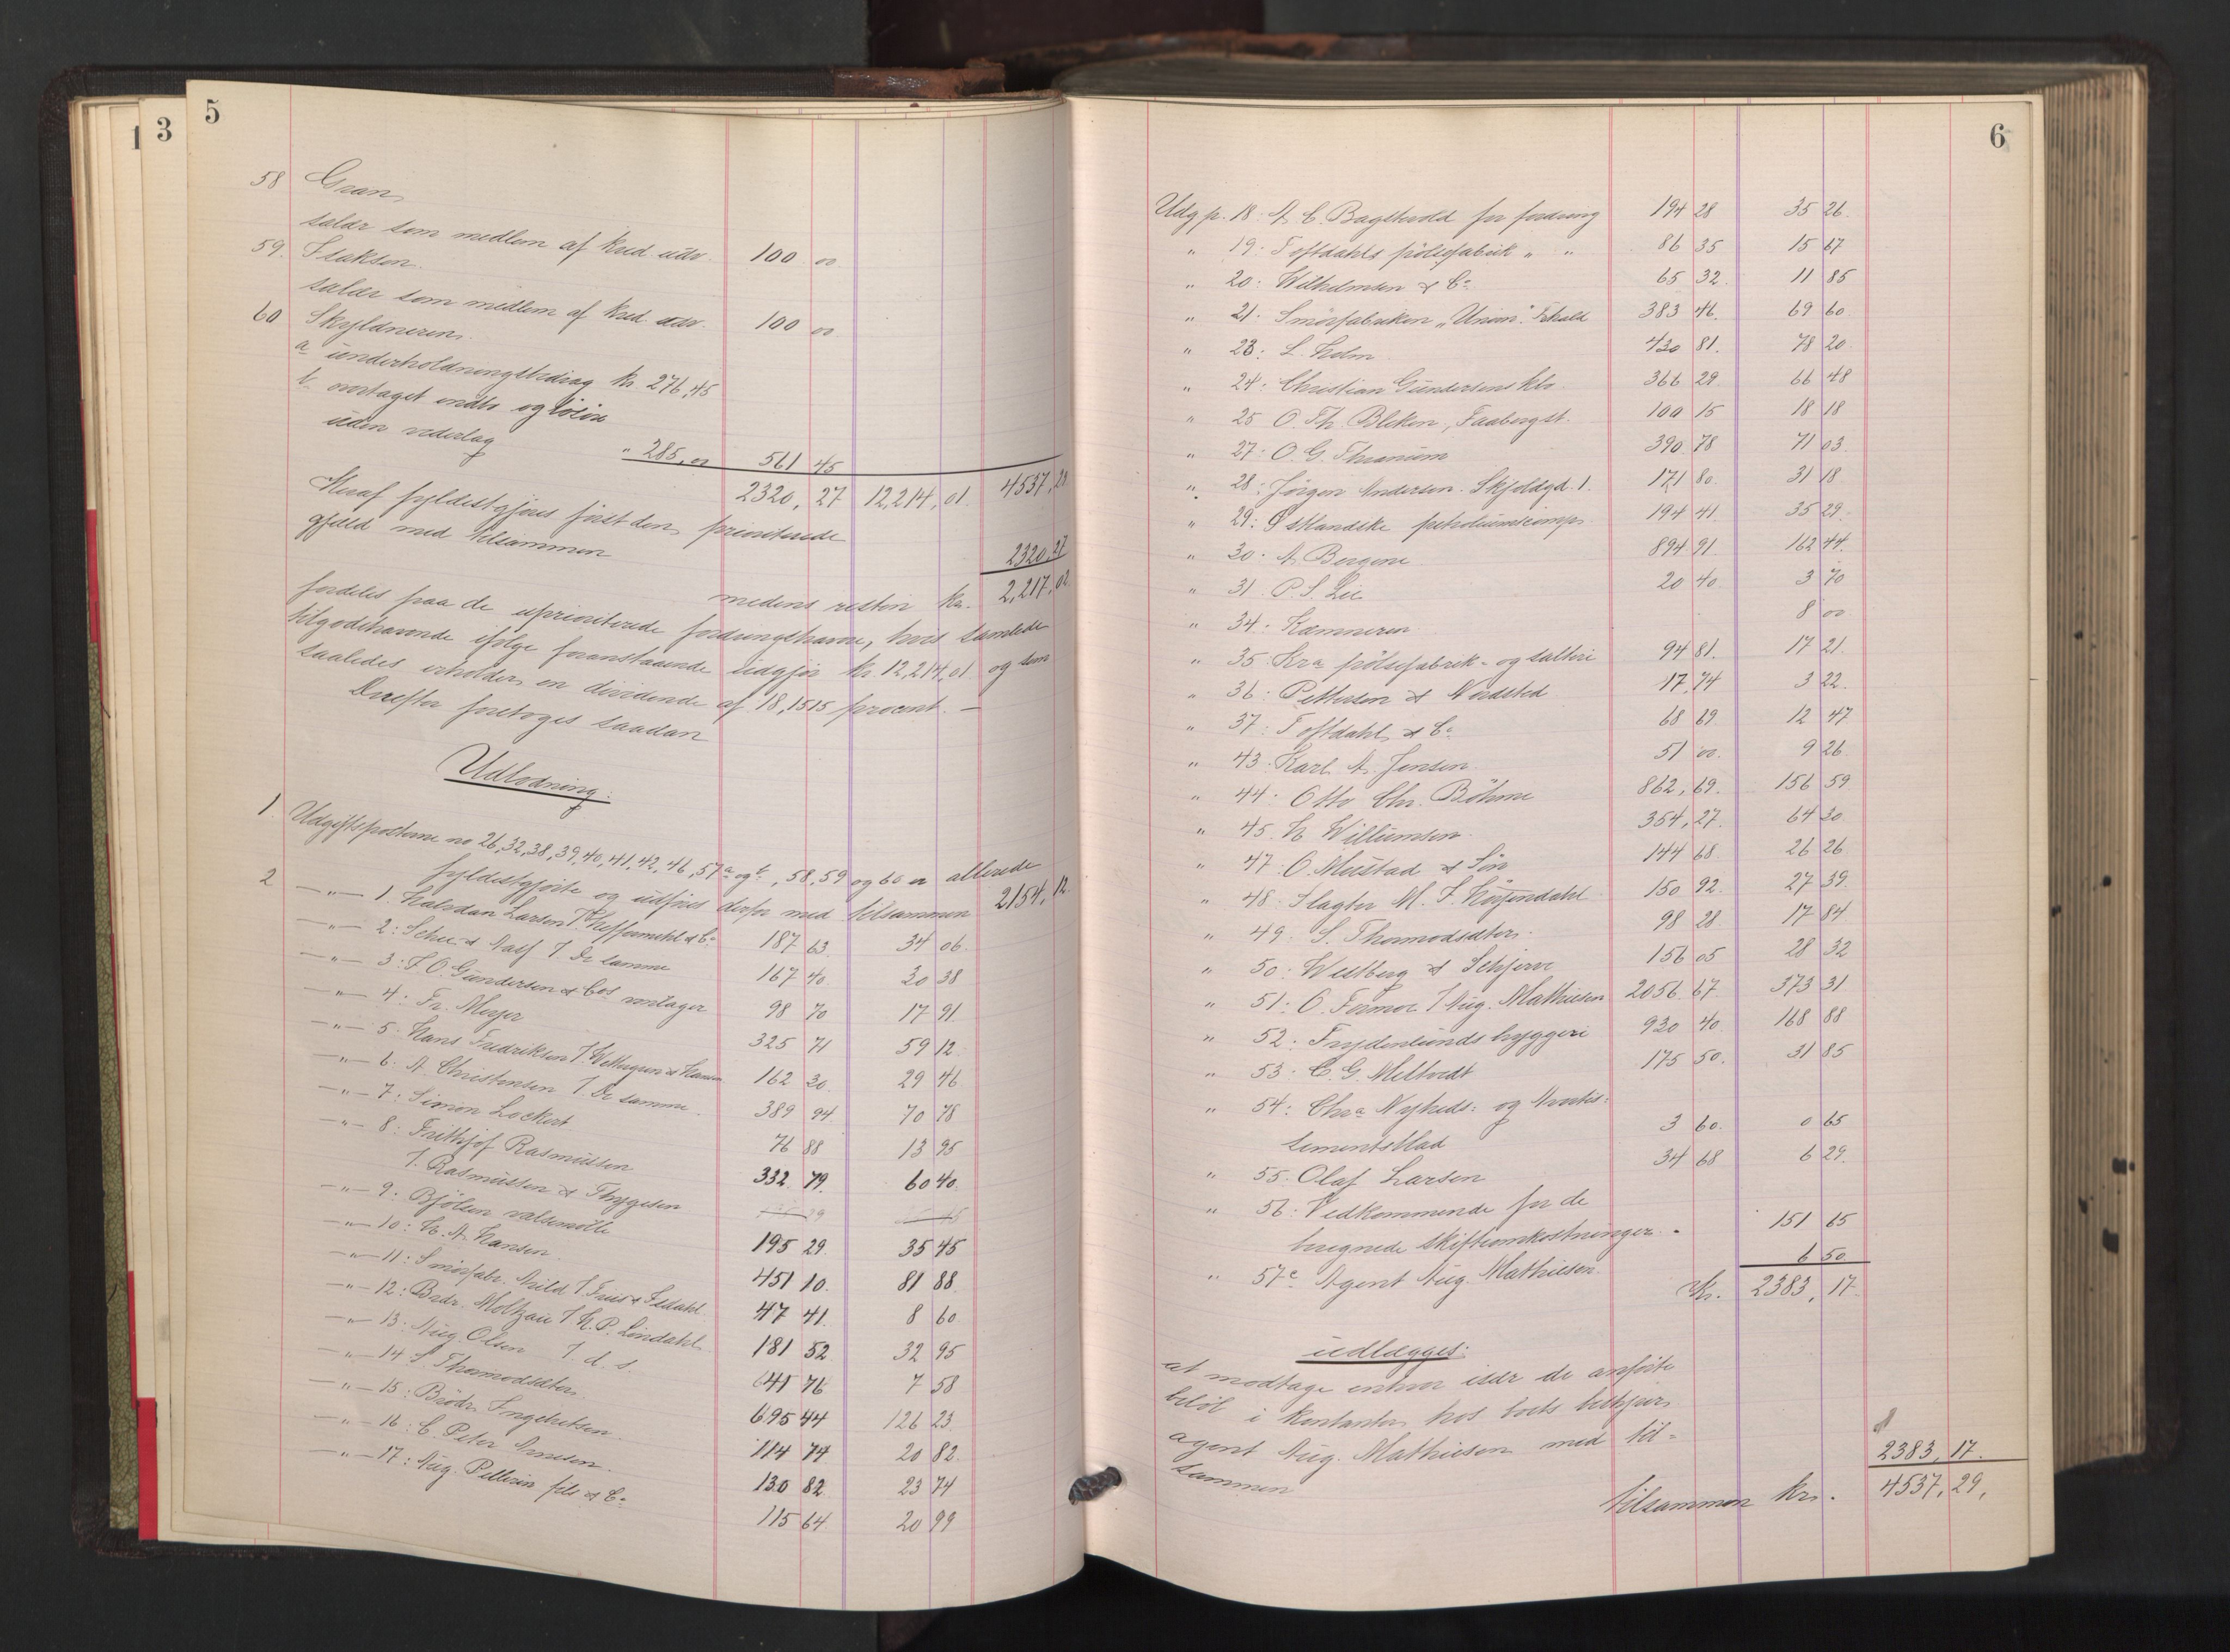 1
3
5
58 Gran,
salær som medlem af kred. udv. 100 00
59. Isaksen.
salær som medlem af kred. udv. 100 00
60 Skyldneren.
a underholdningsbidrag kr. 276,45
b. overtaget indbo og løsøre
uden vederlag " 285,00 561 45
2320,27 12,214,01. 4537,29
Heraf fyldestgjøres først den prioriterede
gjæld med tilsammen 2320,27
medens resten kr. 2,217,02
fordeles paa de uprioriterede fordringshavere, hvis samlede
tilgodehavende ifølge foranstaaende udgjør kr 12,214,01 og som
saaledes erholder en dividende af 18,1515 procent. —
Derefter foretoges saadan
Udlodning:
1. Udgiftsposterne no 26,32,38,39,40,41,42,46,57a og b, 58,59 og 60 er allerede
fyldestgjørte og udføres derfor med tilsammen 2154,12
2 —"— 1. Halvdan Larsen T. Heffermehl & Co 187 63. 34 06.
—"— 2: Schee & Naef T. De samme 167 40. 30 38
—"— 3: F. O. Gundersen & Cos varelager 98 70 17 91
—"— 4: Fr. Meyer 325 71 59 12.
—"— 5. Hans Fredriksen T. Wettergren & Hansen 162 30. 29 46
—"— 6. A. Christensen T. De samme. 389 94. 70 78
—"— 7: Simon Lockert 76 88 13 95
—"— 8: Frithjof Rasmussen
T. Rasmussen & Thygesen 332 79. 60 40.
—"— 9: Bjølsen valsemølle 195 29. 35 45
—"— 10: H. A. Hansen. 451 10. 81 88
—"— 11: Smørfabr. Arild T. Friis & 47 41. 8 60.
—"— 12: Brdr. Moltzau T. H. P. Lindahl 181 52 32 95
—"— 13: Aug. Olsen T. d. s. 41 76 7 58
—"— 14 S. Thormodsæter. 695 44 126 23.
—"— 15: Brødr. Ingebretsen. 114 74 20 82.
—"— 16: C. Peter Arnesen. 130 82 23 74
—"— 17: Aug. Pellerin fils & Co 115 64. 20 99
6
Udg p. 18: A. C. Bagthvold for fordring 194 28 35 26.
" 19: Toftdahls pølsefabrik " " 86 35 15 67
" 20: Wilhelmsen & Co 65 32. 11 85
" 21. Smørfabriken "Union". Fr.hald 383 46. 69 60.
" 23: L. Holm. 430 81. 78 20.
" 24: Christian Gundersens Eftf. 366 29 66 48
" 25 O. Th. Bleken, Faabergst. 100 15 18 18
" 27: O. G. Thranum 390 78 71 03.
" 28: Jørgen Andersen. Skjoldgd. 1. 171 80. 31 18
" 29: Østlandske petroleumscomp. 194 41. 35 29.
" 30. A. Bergene 894 91. 162 44.
" 31. P. S. Lie 20 40. 3 70
" 34. Kæmneren 8 00
" 35. Kra pølsefabrik- og salteri 94 81. 17 21.
" 36: Pettersen & Nordsted 17,74 3 22.
" 37: Toftdahl & Co 68 69 12 47
" 43. Karl A. Jensen. 51 00. 9 26.
" 44. Otto Chr. Böhme 862,69. 156 59.
" 45. H. Willumsen. 354,27. 64 30
" 47. O. Mustad & Søn 144 68. 26 26.
" 48. Slagter M. S. 150 92. 27 39.
" 49. S. Thormodsæter. 98 28 17 84
" 50: Westberg & Schjerve 156 05 28 32
" 51: O. Formoe T. Aug. Mathiesen 2056 67. 373 31
" 52: Frydenlunds bryggeri 930 40. 168 88
" 53: C. G. Meltvedt 175 50. 31 85
" 54: Chra Nyheds- og Avertis-
sementsblad 3 60. 0 65
" 55. Olaf Larsen 34 68 6 29.
" 56: Vedkommende for de
beregnede skifteomkostninger. 151 65
" 57c Agent Aug. Mathiesen. 6 50.
Kr. 2383,17.
udlægges:
at modtage enhver især de anførte
beløb i kontanter hos boets bestyrer
agent Aug. Mathiesen med til-
sammen 2383,17.
tilsammen kr. 4537,29,